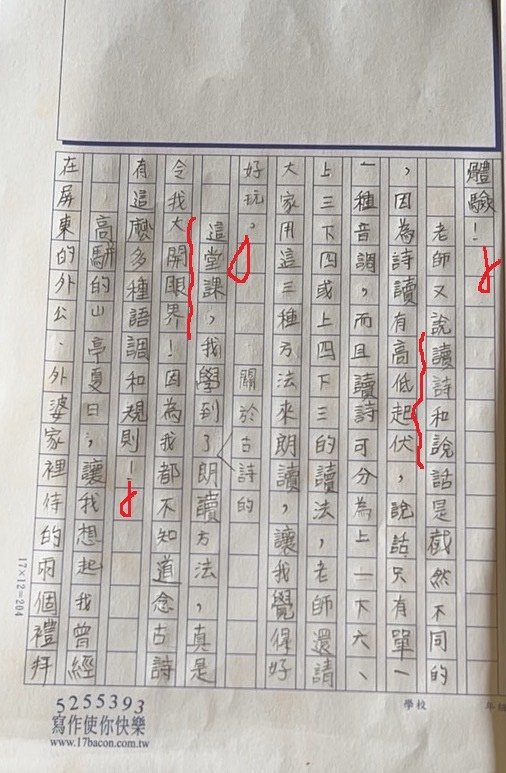 體驗！
老師又說讀詩和說話是截然不同的
，因為詩讀有高低起伏，說話只有單一
一種音調，而且讀詩可分為上一下六、
上三下四或上四下三的讀法，老師還請
大家用這三種方法來朗讀，讓我覺得好
好玩。
關於古詩的
這堂課，我學到了朗讀方法，真是
令我大開眼界！因為我都不知道念古詩
有這麼多種語調和規則！
高駢的山亭夏日，讓我想起我曾經
在屏東的外公、外婆家裡待的兩個禮拜
17×12=204
5255393
寫作使你快樂
www.17bacon.com.tw
學校
年級